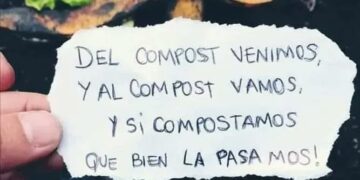 DEL COMPOST VENIMOS,
Y AL COMPOST VAMOS,
Y SI COMPOSTAMOS
QUE BIEN LA PASAMOS!